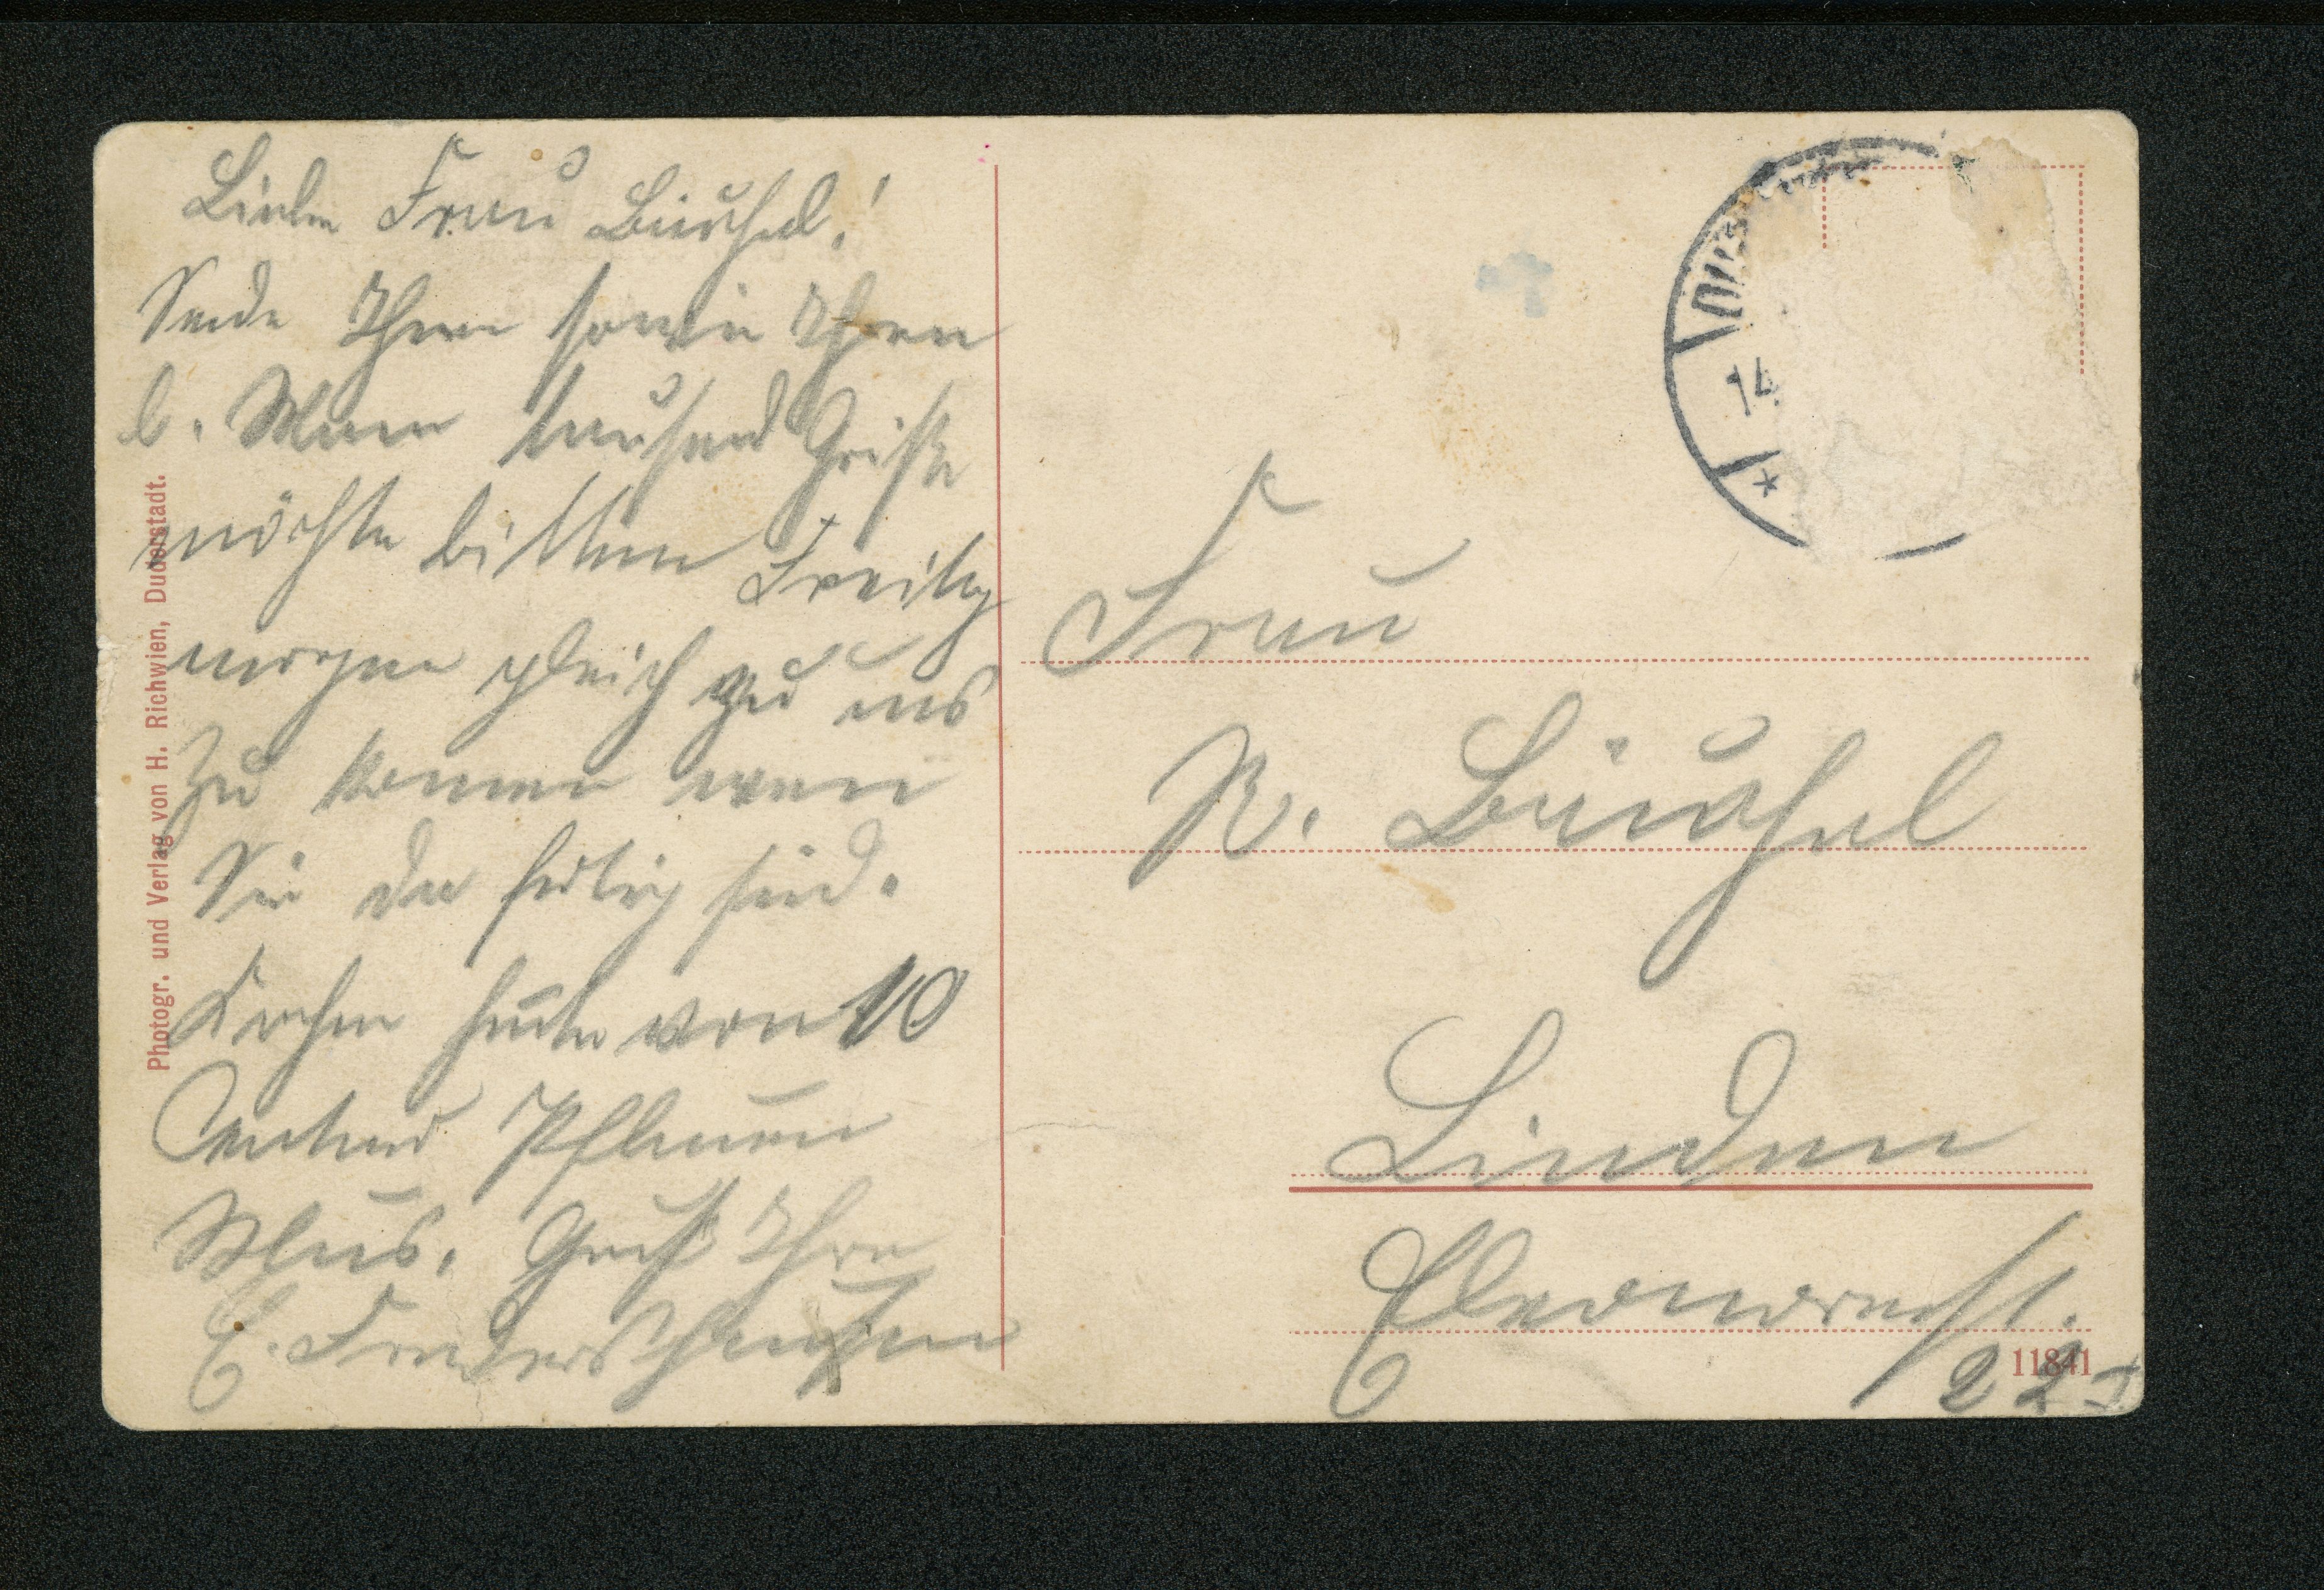 Liebe Frau Büschel!
Sende Ihnen sowie Ihren
l. Mann tausend Grüße
möchte bitten Freitag
morgen gleich zu uns
zu kommen wenn
Sie da fertig sind.
Kochen heute von 10
Centner Pflaumen
Mus. Gruß Ihre
E.
Photogr. und Verlag von H. Richwien, Duderstadt.
14
Frau
R. Büschel
Linden
22 I
11841